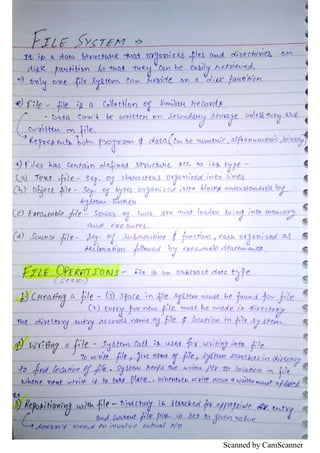 FILE SYSTEM ⇒
It is a data structure that organizes files and directories on
disk partition so that they can be easily retrieved.
⇒) only one file system can reside on a disk partition
*) File - file is a collection of similar records.
· Data can't be written on secondary storage unless they are
written in file.
· Represents both program & data (can be numeric, alphanumeric, binary)
⇒) Files has certain defined structure acc. to its type -
(a) Text file - Seq. of characters organized into lines
(b) Object file - Seq. of bytes organized into blocks understandable by
system linker
(c) Executable file - Series of code sec. that loader bring into memory
and executes.
(d) Source file - Seq. of subroutine & function, each organized as
declaration followed by executable statements.
FILE OPERATIONS - file is an abstract data type
1) Creating a file - (1) Space in file system must be found for file
(2) Entry for new file must be made in directory
The directory entry records name of file & location in file system
2) Writing a file - System call is used for writing into file
To write file, give name of file, system searches in directory
to find location of file. System keeps the writer ptr to location in file
where next write is to take place. Whenever write occur writer must updated
3) Repositioning with file - Directory is searched for appropriate entry
and current file pos. is set to given value
doesn't need to involve actual I/O
Scanned by CamScanner